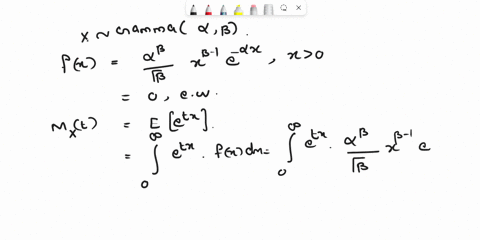 x ~ Gramma( α, β).
f(x) = α^β / Γβ x^(β-1) e^(-αx) , x>0
= 0 , e.w.
M_x(t) = E [e^(tx)].
= ∫_0^∞ e^(tx) . f(x) dx = ∫_0^∞ e^(tx) . α^β / Γβ x^(β-1) e